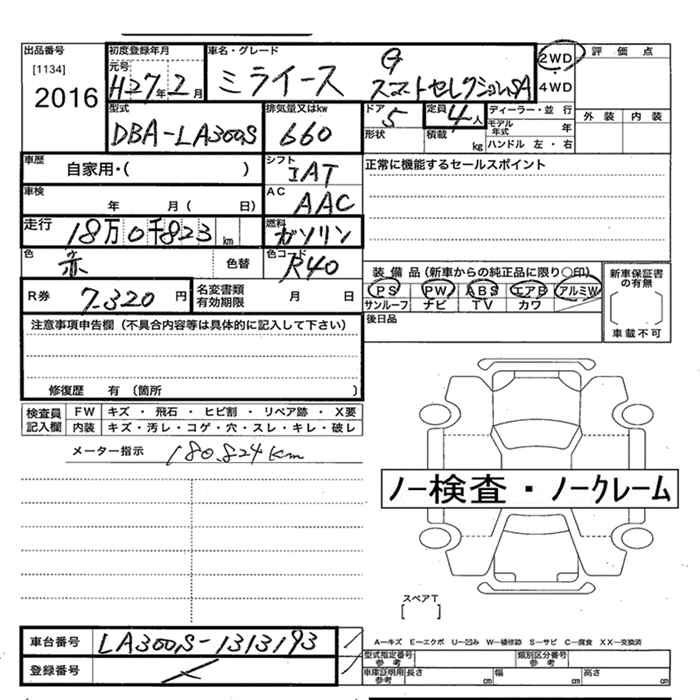 出品番号 初度登録年月 車名・グレード 評価点
[1134] 元号 G 2WD
2016 H27年2月 ミライース スマートセレクションSA ・4WD
型式 排気量又はkw ドア 定員 ディーラー・並行 外装 内装
DBA-LA300S 660 5 4人 モデル年式 年
形状 積載 kg ハンドル 左・右
車歴 自家用・( ) シフト IAT 正常に機能するセールスポイント
車検 年 月( 日) AC AAC
走行 18万0千823km 燃料 ガソリン
色 赤 色替 色コード R40
装備品(新車からの純正品に限り○印) 新車保証書の有無
R券 7.320円 名変書類有効期限 月 日 PS PW ABS エアB アルミW
サンルーフ ナビ TV カワ
注意事項申告欄(不具合内容等は具体的に記入して下さい) 後日品 車載不可
修復歴 有(箇所 )
検査員記入欄 FW キズ・飛石・ヒビ割・リペア跡・X要
内装 キズ・汚レ・コゲ・穴・スレ・キレ・破レ
メーター指示 180.824km
ノー検査・ノークレーム
スペアT
[ ]
車台番号 LA300S-1313193
登録番号
A−キズ E−エクボ U−凹み W−補修跡 S−サビ C−腐食 XX−交換済
型式指定番号 参考 類別区分番号 参考
車庫証明用 参考 長さ cm 幅 cm 高さ cm